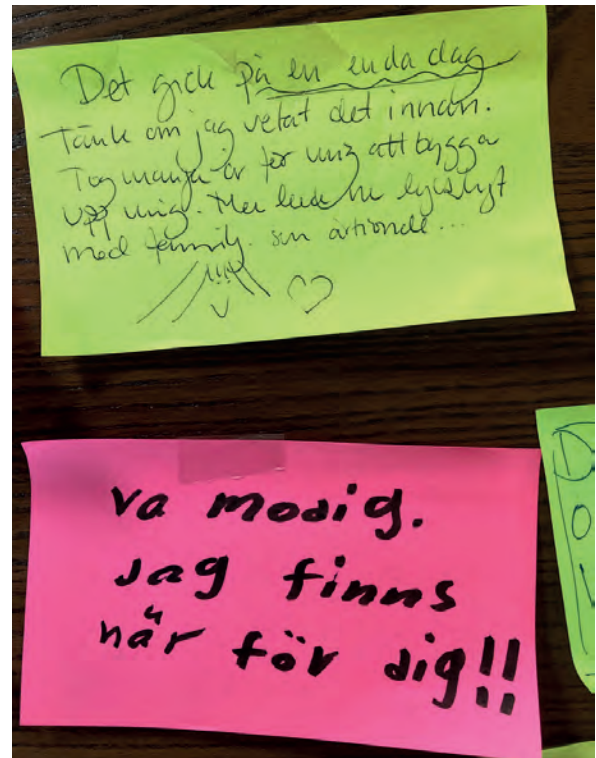 Det gick på en enda dag
Tänk om jag vetat det innan.
Tog många år för mig att bygga
upp mig. Men lever nu lyckligt
med familj. sen årtionde...
Va modig.
Jag finns
här för dig!!
D
O
L